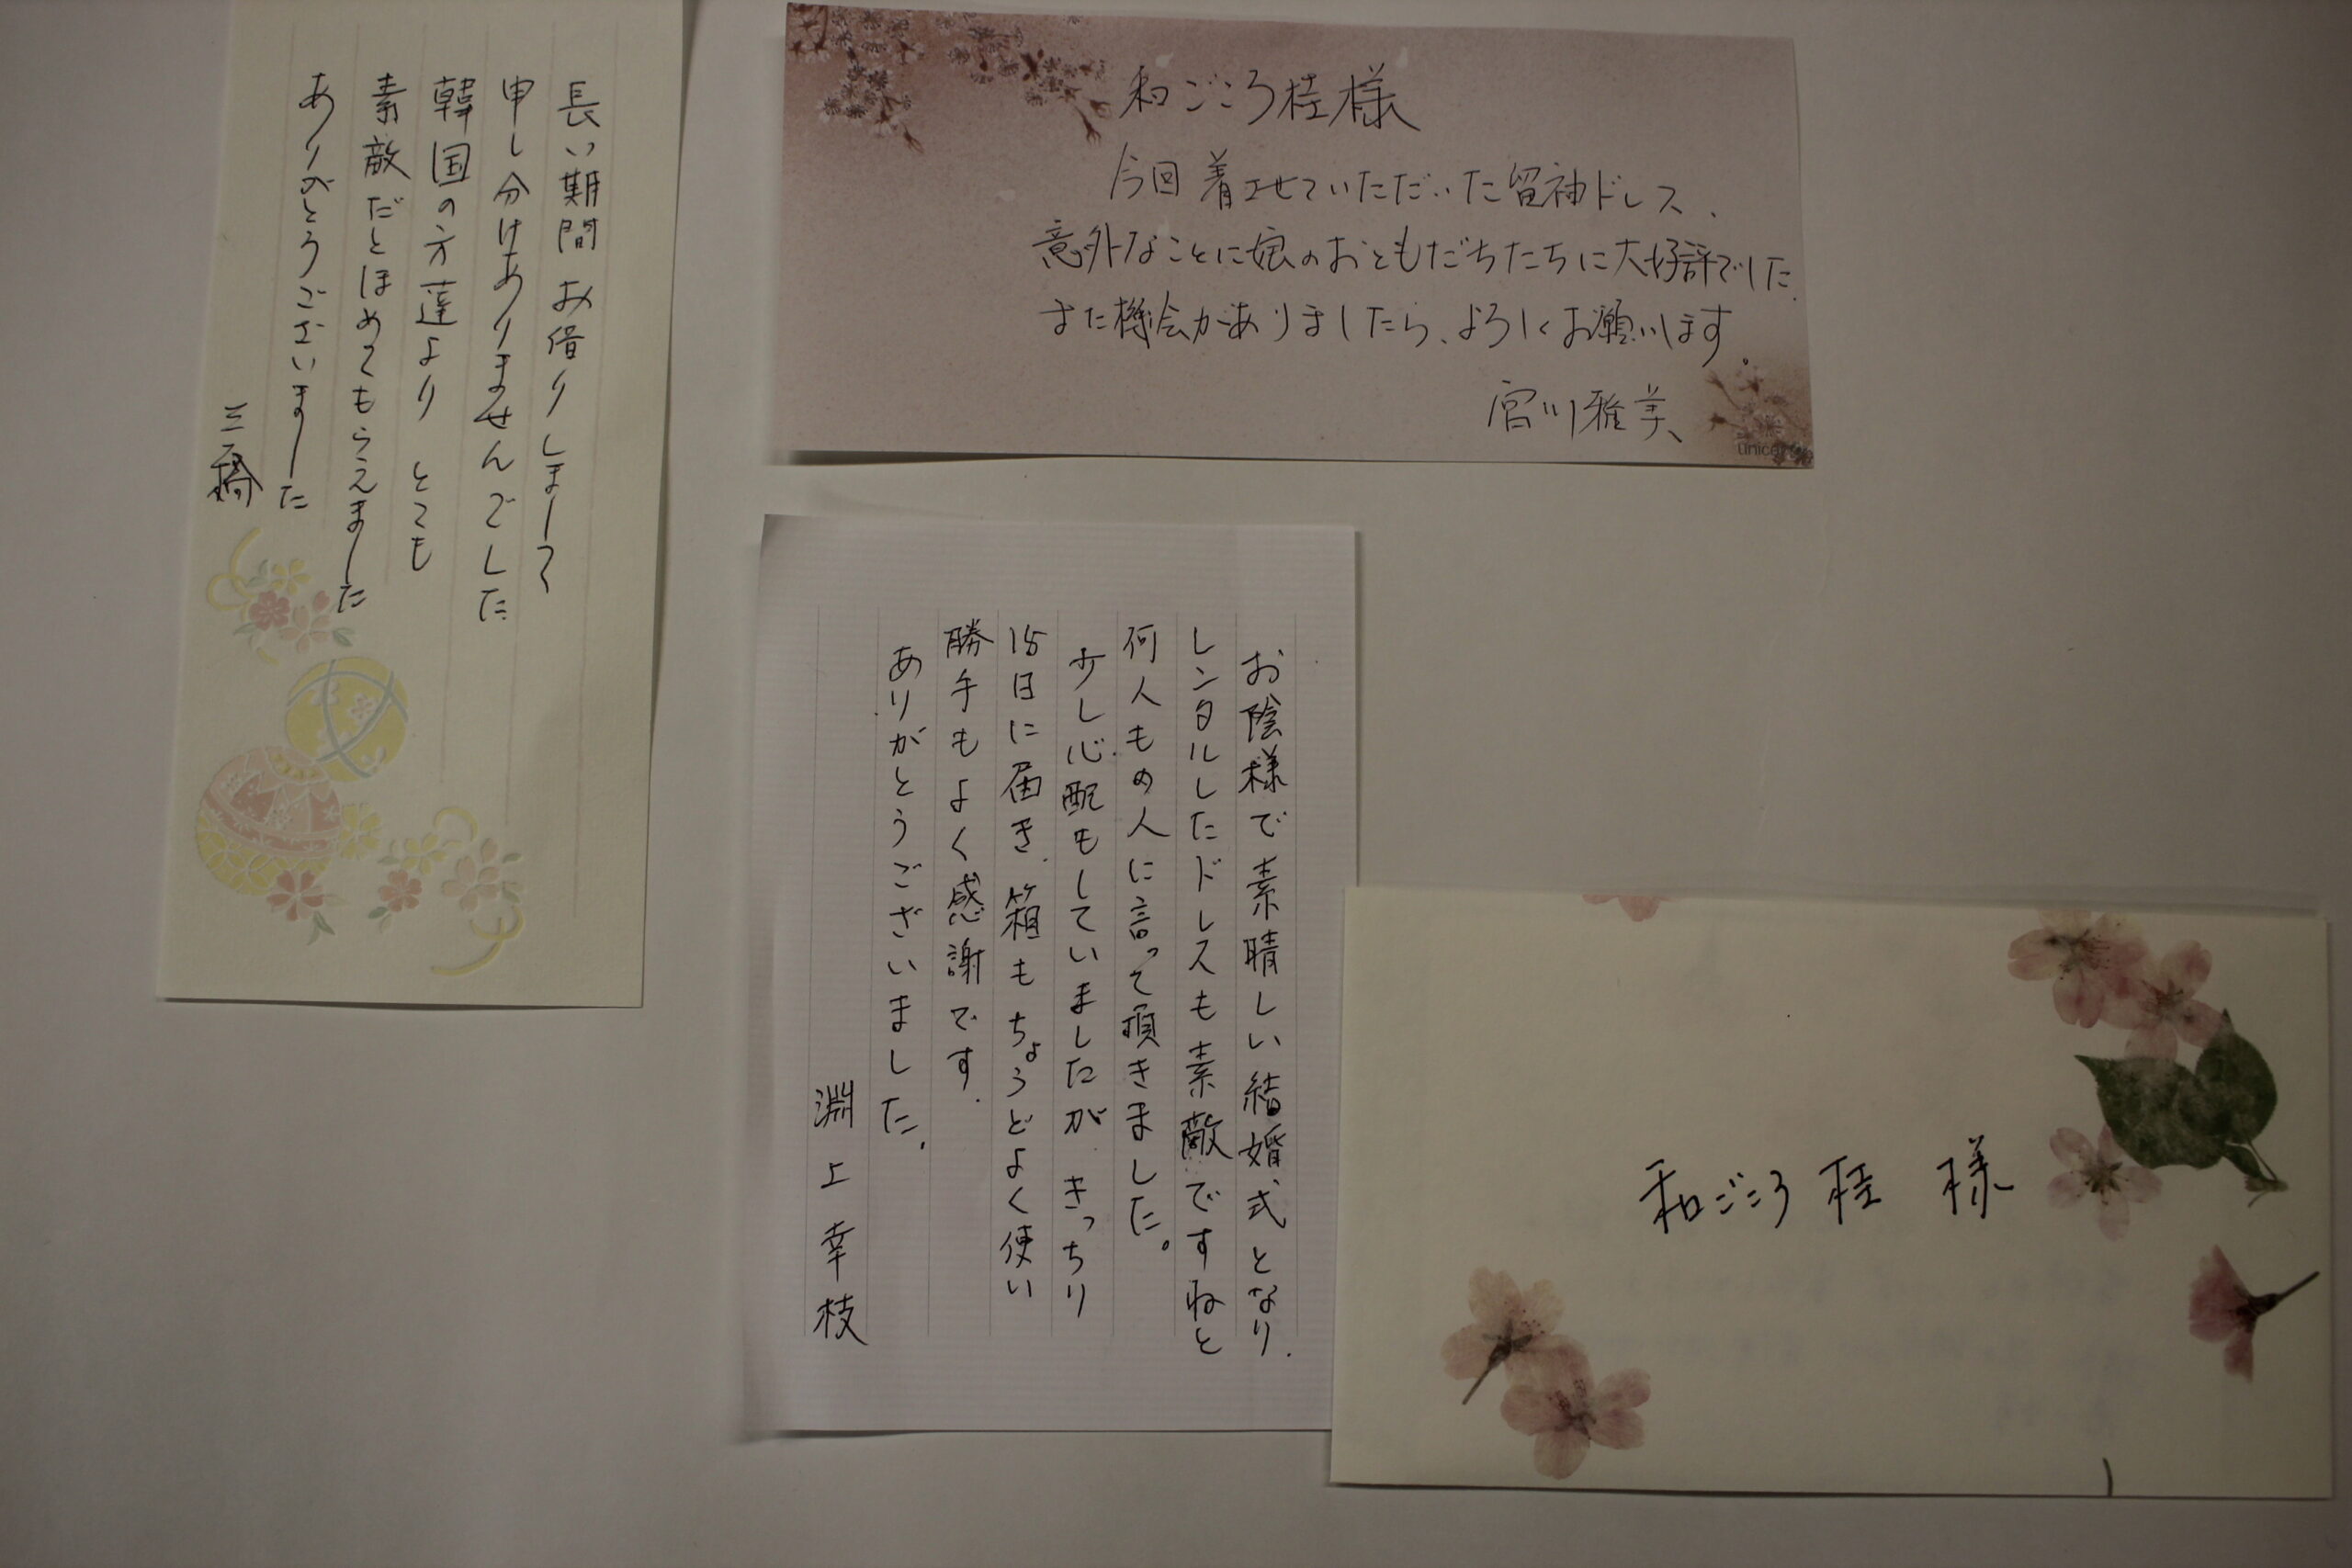 長い期間お借りしまして
申し分けありませんでした
韓国の方達より とても
素敵だとほめてもらえました
ありがとうございました
三橋
和ごころ桂様
今回着させていただいた留袖ドレス、
意外なことに娘のおともだちたちに大好評でした.
また機会がありましたら、よろしくお願いします。
宮川雅美
unicef
お陰様で素晴しい結婚式となり.
レンタルしたドレスも素敵ですねと
何人もの人に言って頂きました。
少し心配もしていましたが きっちり
15日に届き、箱もちょうどよく使い
勝手もよく感謝です.
ありがとうございました.
淵上幸枝
和ごころ 桂 様